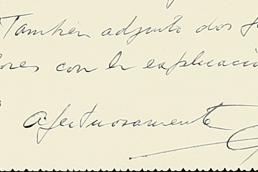 También adjunto dos
ores con la explicació
Afectuosamente